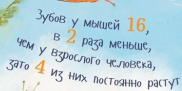 Зубов у мышей 16,
в 2 раза меньше,
чем у взрослого человека,
зато 4 из них постоянно растут